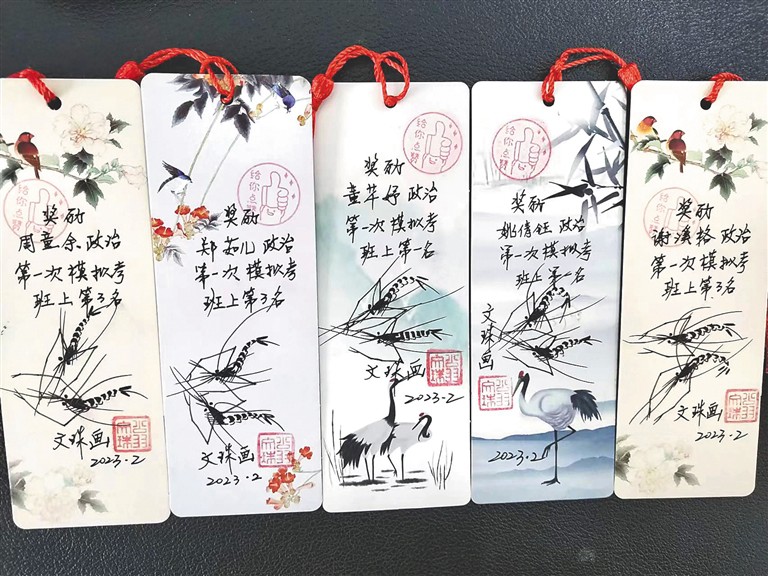 给你点赞
奖励
政治
第一次模拟考
班上第3名
文珠画
2023.2
给你点赞
奖励
郑茹儿 政治
第一次模拟考
班上第3名
文珠画
2023.2
给你点赞
奖励
童芊妤 政治
第一次模拟考
班上第一名
文珠画
2023.2
给你点赞
奖励
姚倩钰 政治
第一次模拟考
班上第一名
文珠画
2023.2
给你点赞
奖励
谢溪格 政治
第一次模拟考
班上第3名
文珠画
2023.2